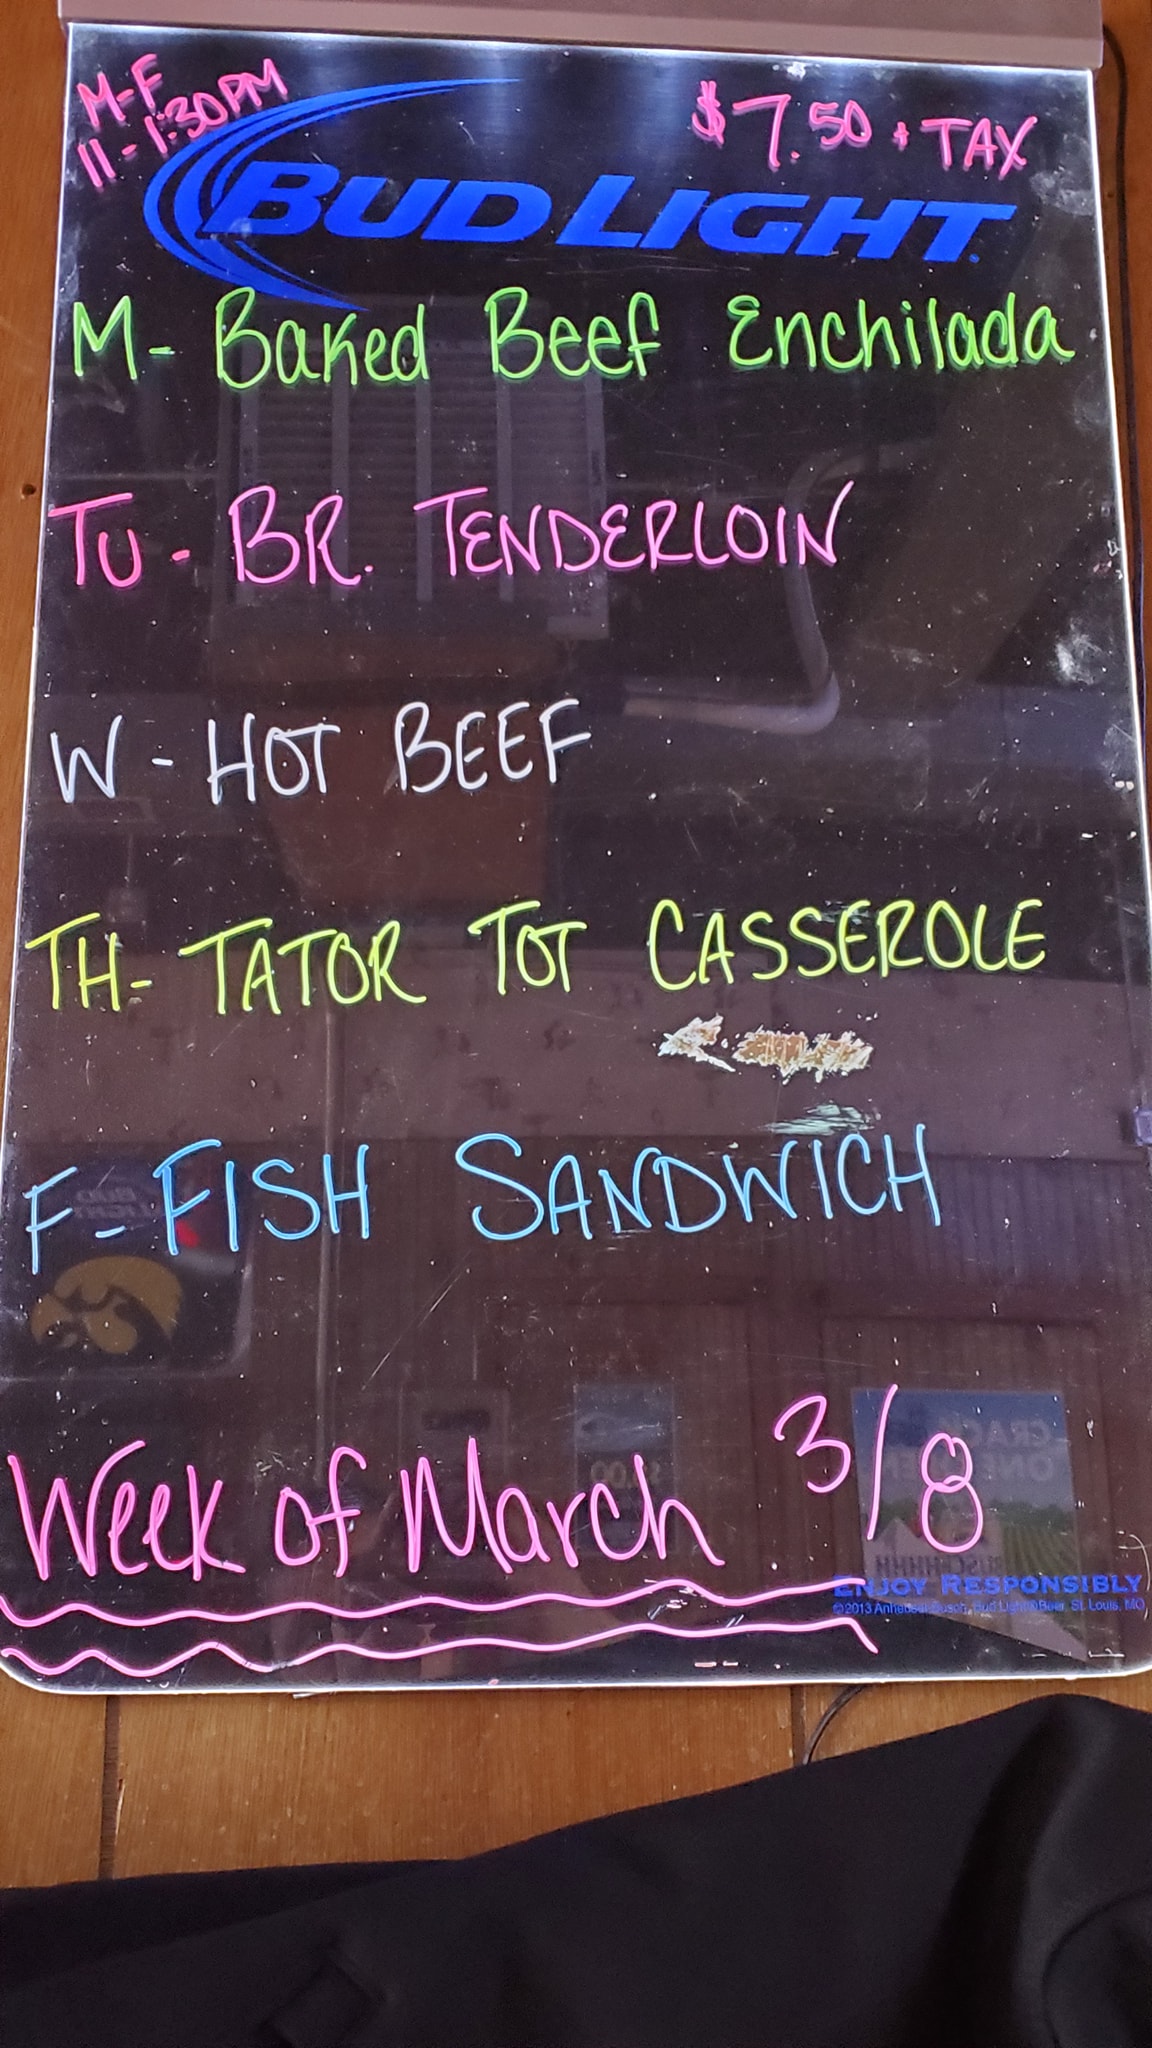 M-F
11-1:30PM
$7.50 + TAX
BUD LIGHT
M- Baked Beef Enchilada
TU - BR. TENDERLOIN
W - HOT BEEF
TH- TATOR TOT CASSEROLE
F- FISH SANDWICH
Week of March 3/8
ENJOY RESPONSIBLY
©2013 Anheuser-Busch, Bud Light® Beer, St. Louis, MO